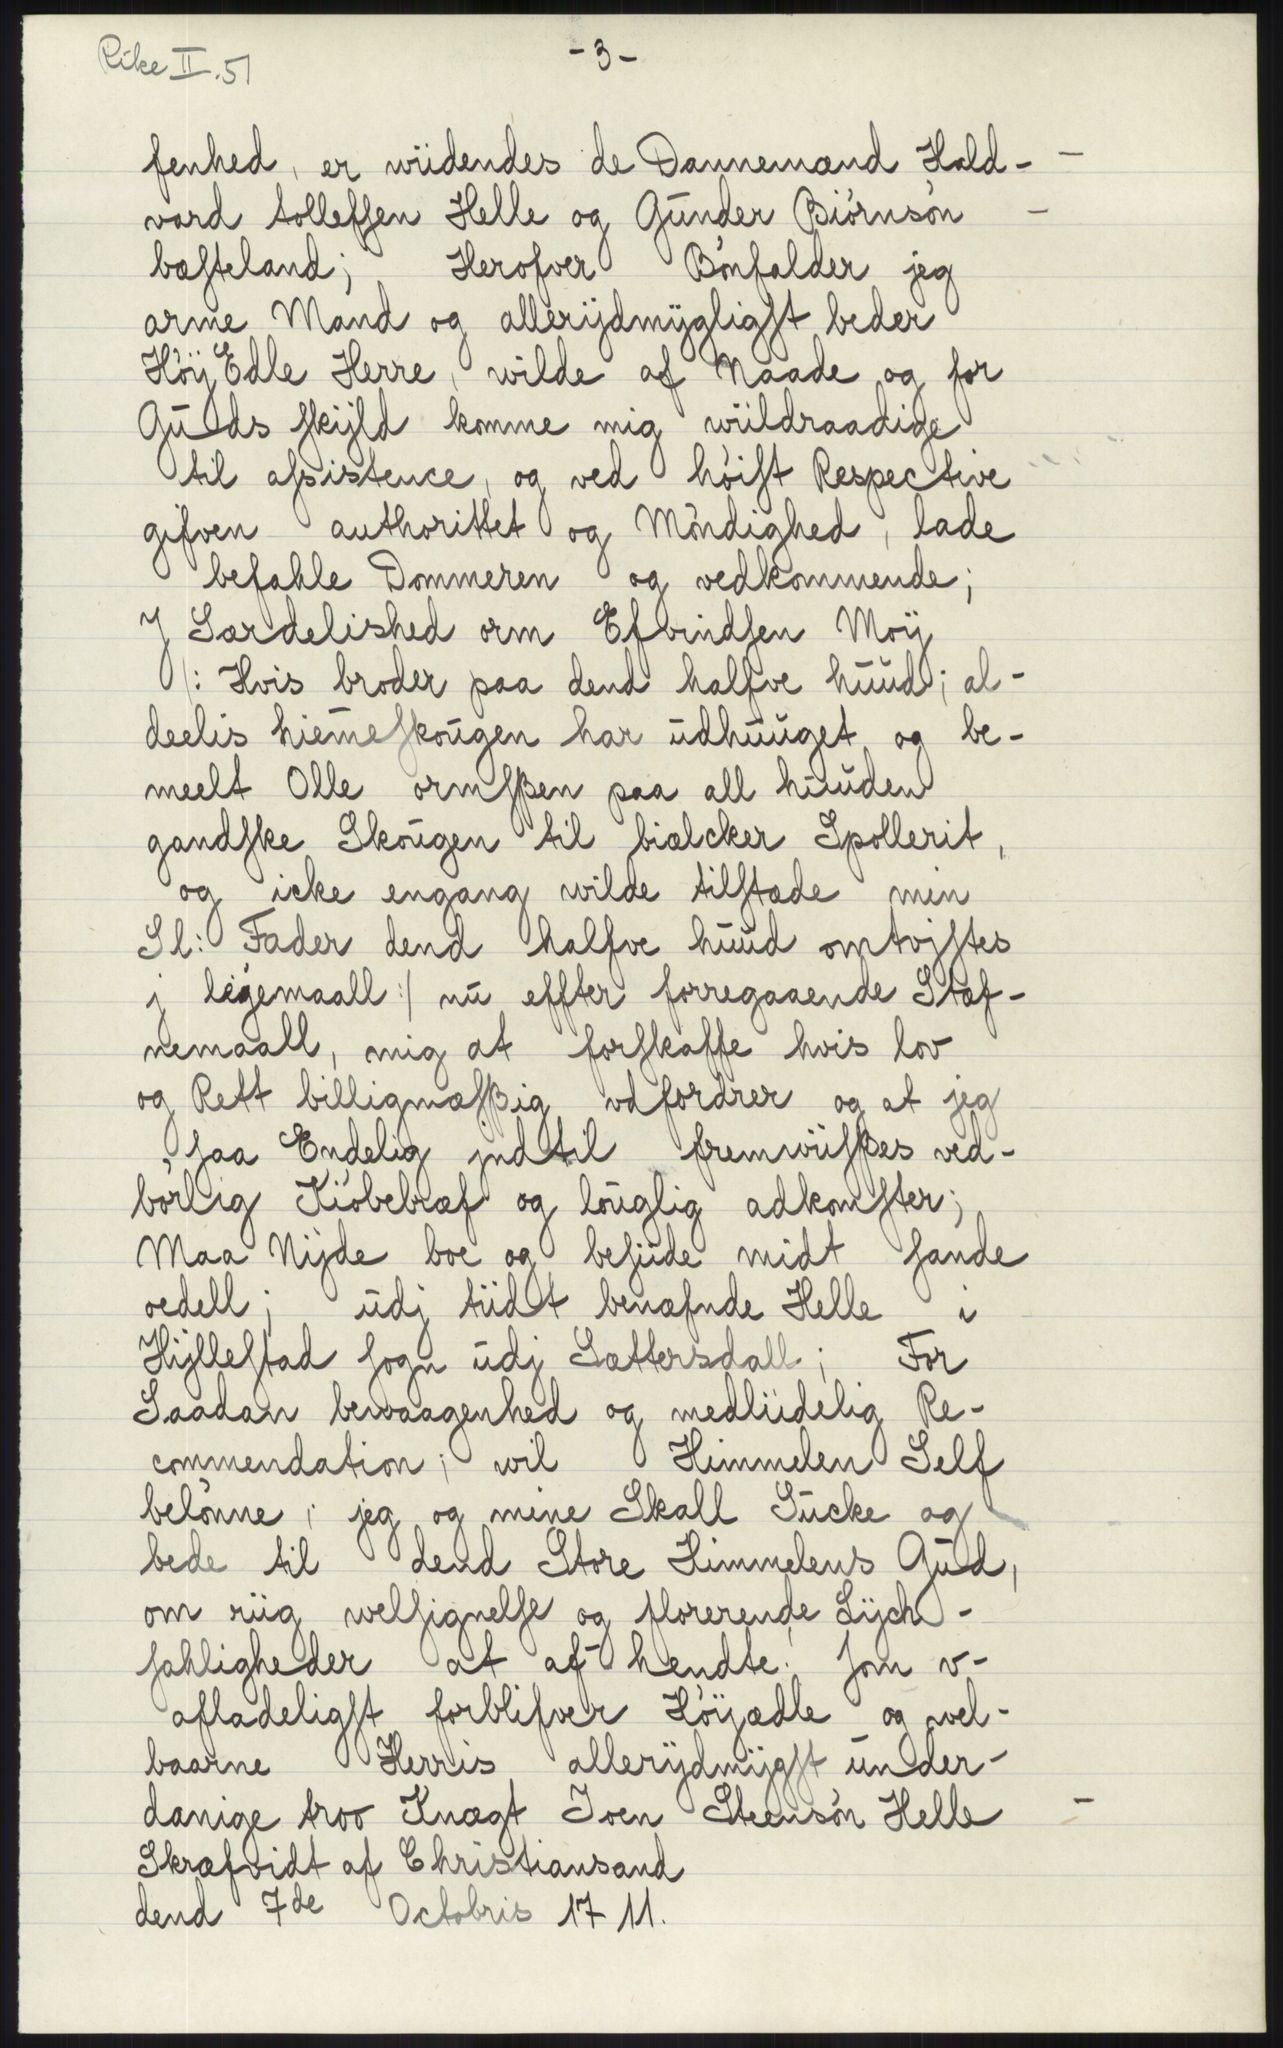 Rike II.51
-3-
fenhed, er wiidendes de Dannemænd Hald-
vard tolleffsen Helle og Gŭnder Biörnsön
bæsteland; Herofver Bönfalder jeg
arme Mand og allerijdmÿgligst beder
HöÿEdle Herre, wilde af Naade og for
Gŭds skijld komme mig wiildraadige
til assistence, og ved höist Respective
gifven authorittet og Möndighed, lade
befahle Dommeren og vedkommende;
J Særdelished orm Efvindsen Moÿ
/: Hvis broder paa dend halfve hŭŭd; al-
deelis hiemeskoŭgen har ŭdhŭŭget og be-
meelt Olle ormsßen paa all hŭŭden
gandske Skoŭgen til biælcker Spollerit,
og icke engang wilde tilstæde min
Sl: Fader dend halfve hŭŭd omtvistes
j leÿemaall :/ nŭ effter forregaaende Stæf-
nemaall, mig at forskaffe hvis lov
og Rett billigmæsßig vdfordrer og at jeg
saa Endelig jndtil fremwiisßes ved-
börlig Kiöbebræf og loŭglig adkomster;
Maa Nijde boe og besiide midt sande
oedell; ŭdj tiidt benæfnde Helle i
Hÿllestad sogn ŭdj Sættersdall; For
Saadan bewaagenhed og medliidelig Re-
commendation; wil Himmelen Self
belönne; jeg og mine Skall Sŭcke og
bede til dend Store Himmelens Gŭd,
om riig welsignelse og florerende Lÿck-
sahligheder at af hendte! som v-
afladeligst forblifver Höÿædle og wel-
baarne Herris allerijdmÿgst ŭnder-
danige troo Knægt Joen Steensön Helle
Skræfvidt af Christiansand
dend 7de Octobris 1711.